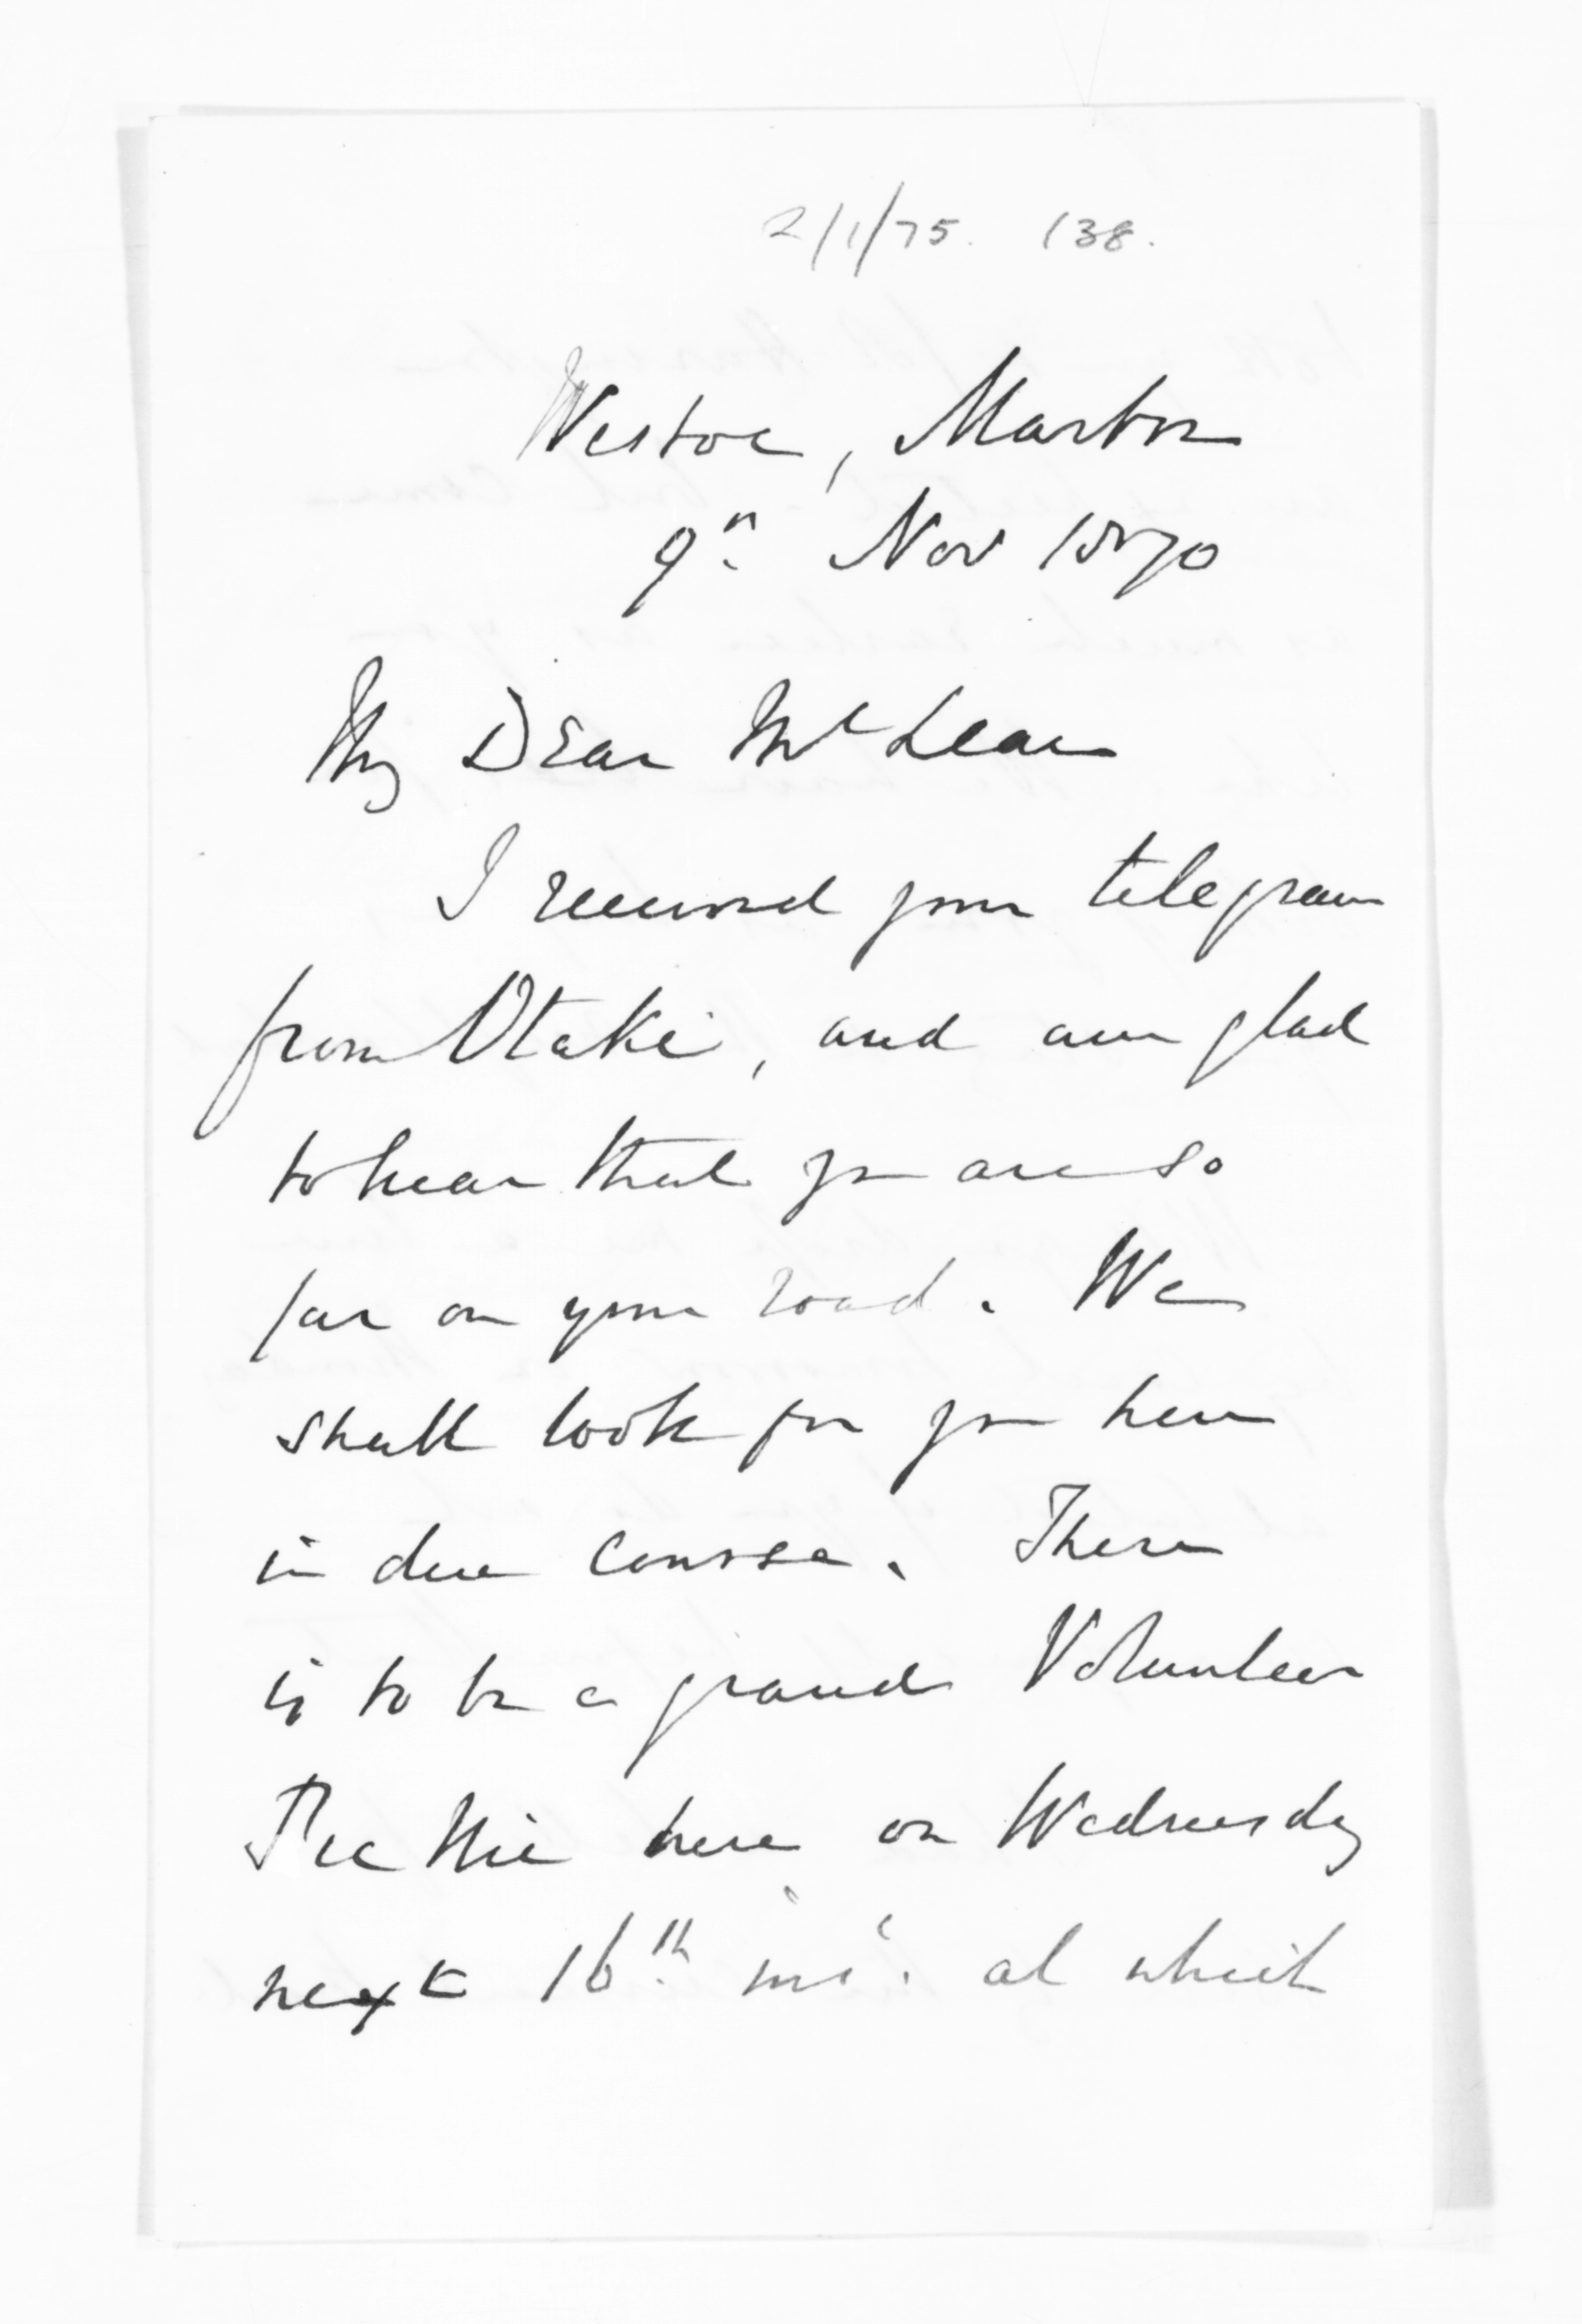 2/1/75. 138.
Westoe, Marton
9th Nov 1870
My Dear McLean
I received your telegram
from Otaki, and am glad
to hear that you are so
far on your road. We
shall look for you here
in due course. There
is to be a grand Volunteer
Pic Nic here on Wednesday
next 16th inst. at which